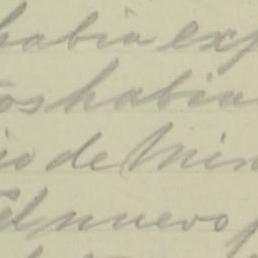 habia exp
os habia
io de Min
El nuevo p